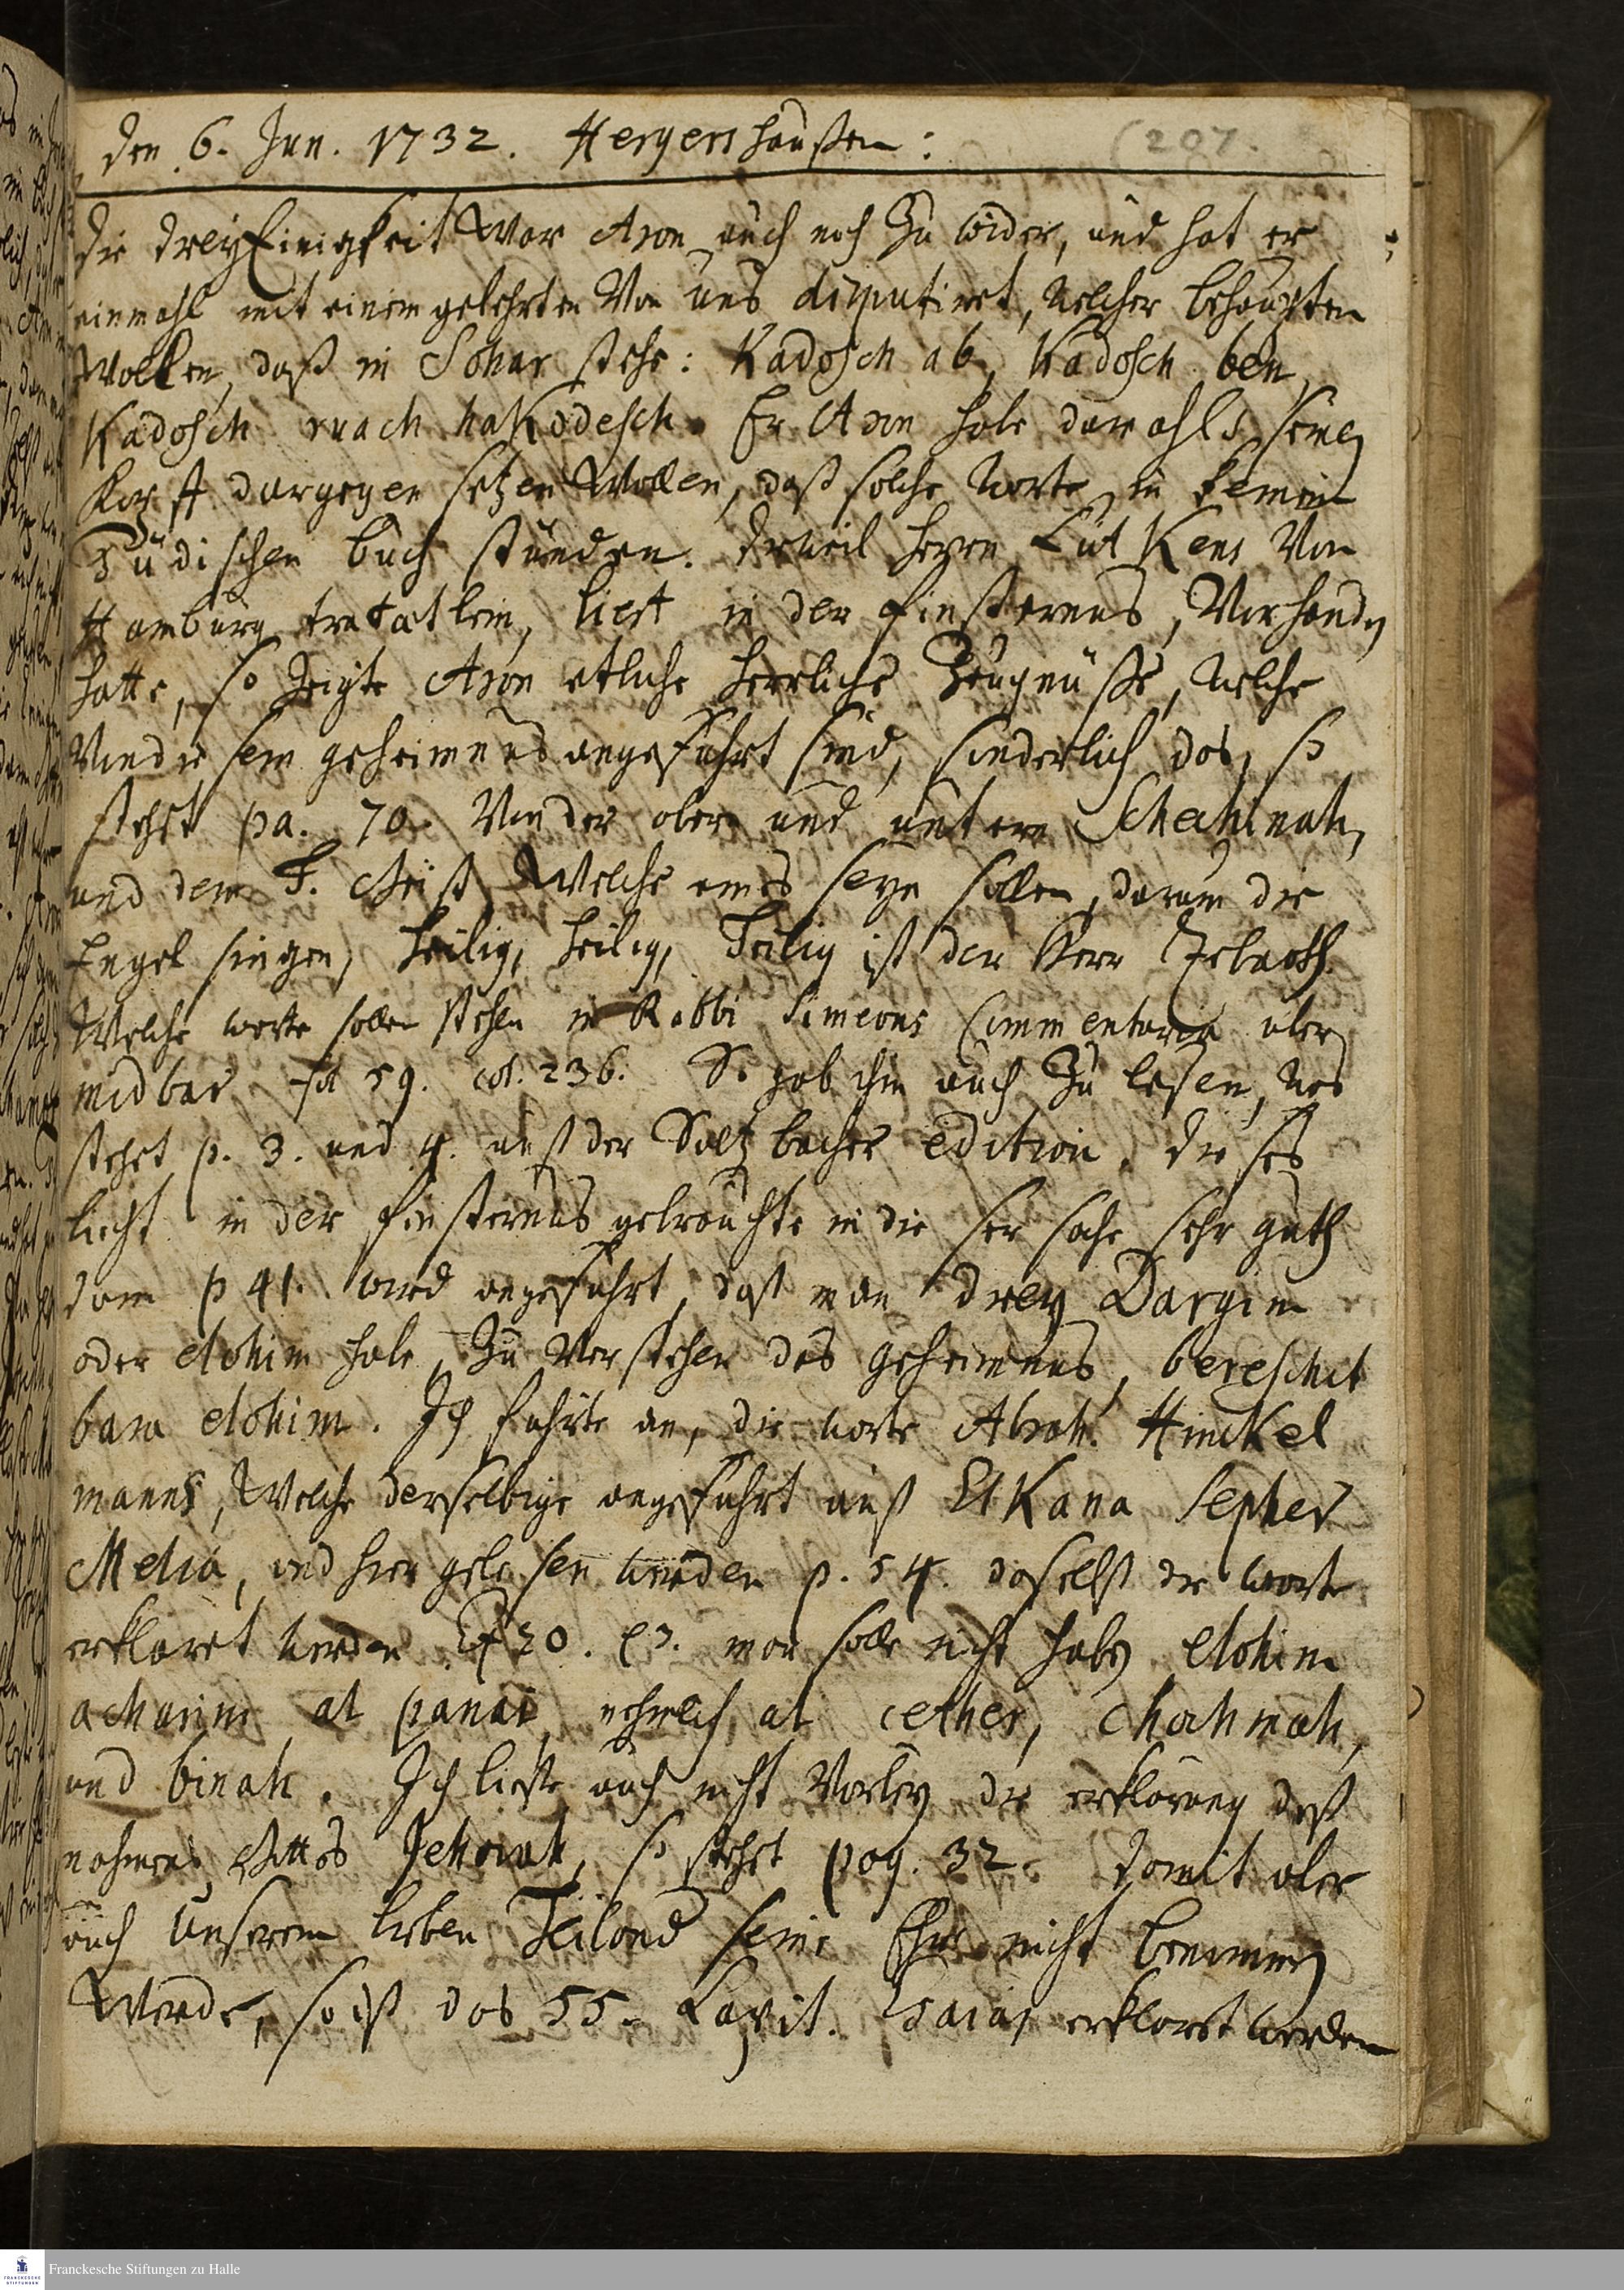 den 6. Jun. 1732. Hergershaußen: (207.
die dreyEinigkeit war Aron auch noch zu wider, und hat er
einmahl mit einem gelehrten von uns disputiret, welcher behaupten
wollen, daß in Sohar stehe: Kadosch ab, Kadosch ben,
Kadosch ruach haKodesch. Er Aron habe damahls seinen
Kopff dargegen setzen wollen, daß solche worte in keinem
Jüdischen buch stünden. Derweil Herrn LütKens von
Hamburg tractatlein, liecht in der finsternus, vorhanden
hatte, so zeigte Aron etliche herrliche Zeugnüsse, welche
von diesem geheimnus angeführt sind, sonderlich das, so
stehet pa. 70. von der obern und untern Schechinah,
und dem H. Geist, welche eines seyn sollen, darum die
Engel singen, heilig, heilig, heilig ist der Herr Zebaoth.
welche worte sollen stehen in Rabbi Simeons Commentario über
midbar fol 59. col. 236. So gab ihm auch zu lesen, was
stehet p. 3. und 4. auß der Sultzbacher edition. dieses
liecht in der finsternus gebrauchte in dieser sache sehr guth
dann p 41. wird angeführt, daß man drey Dargin
oder elohim habe, zu verstehen das geheimnus, bereschit
bara elohim. Ich führte an, die worte Abrah. Hinckel
manns, welche derselbige angeführt auß ElKana Sepher
Melia, und hier gelesen werden p. 54. daselbst die worte
erkläret werden Ex 20. 3. man solle nicht haben elohim
acharim al panai, nehmlich al cether, chochmah,
und binah. Ich ließe auch nicht vorbey die erklärung deß
nahmens Gottes Jehovah, so stehet pag. 32. damit aber
auch unserem lieben Heiland seine Ehre nicht benommen
werde, so ist das 55. Capit. Esaias erkläret werden
Franckesche Stiftungen zu Halle